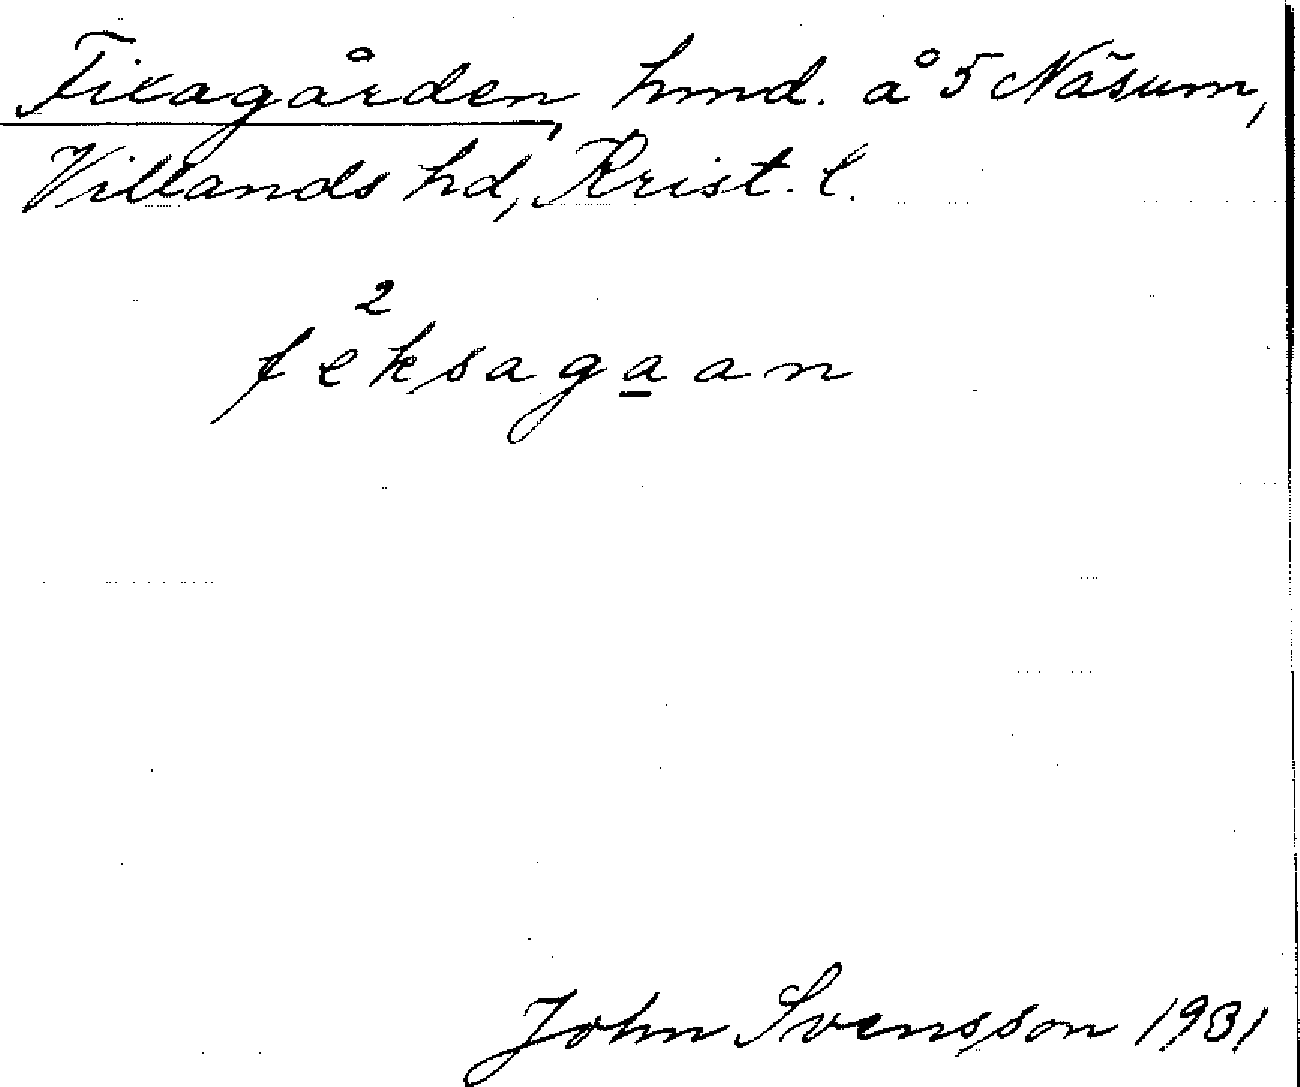 Fixagården, hmd. å 5 Näsum,
Villands hd, Krist. l.
2
feksagaan
John Svensson 1931